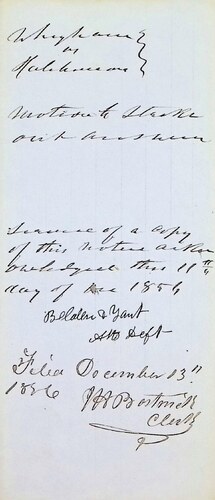 Whigham
vs
Hutchinson
Motion to Strike
out answer
Service of a copy
of this notice ackn
owledged this 11th
day of Dec 1856
Belden & Yant
Atto Deft
Filed December 13th
1856
Bostwick
Clerk